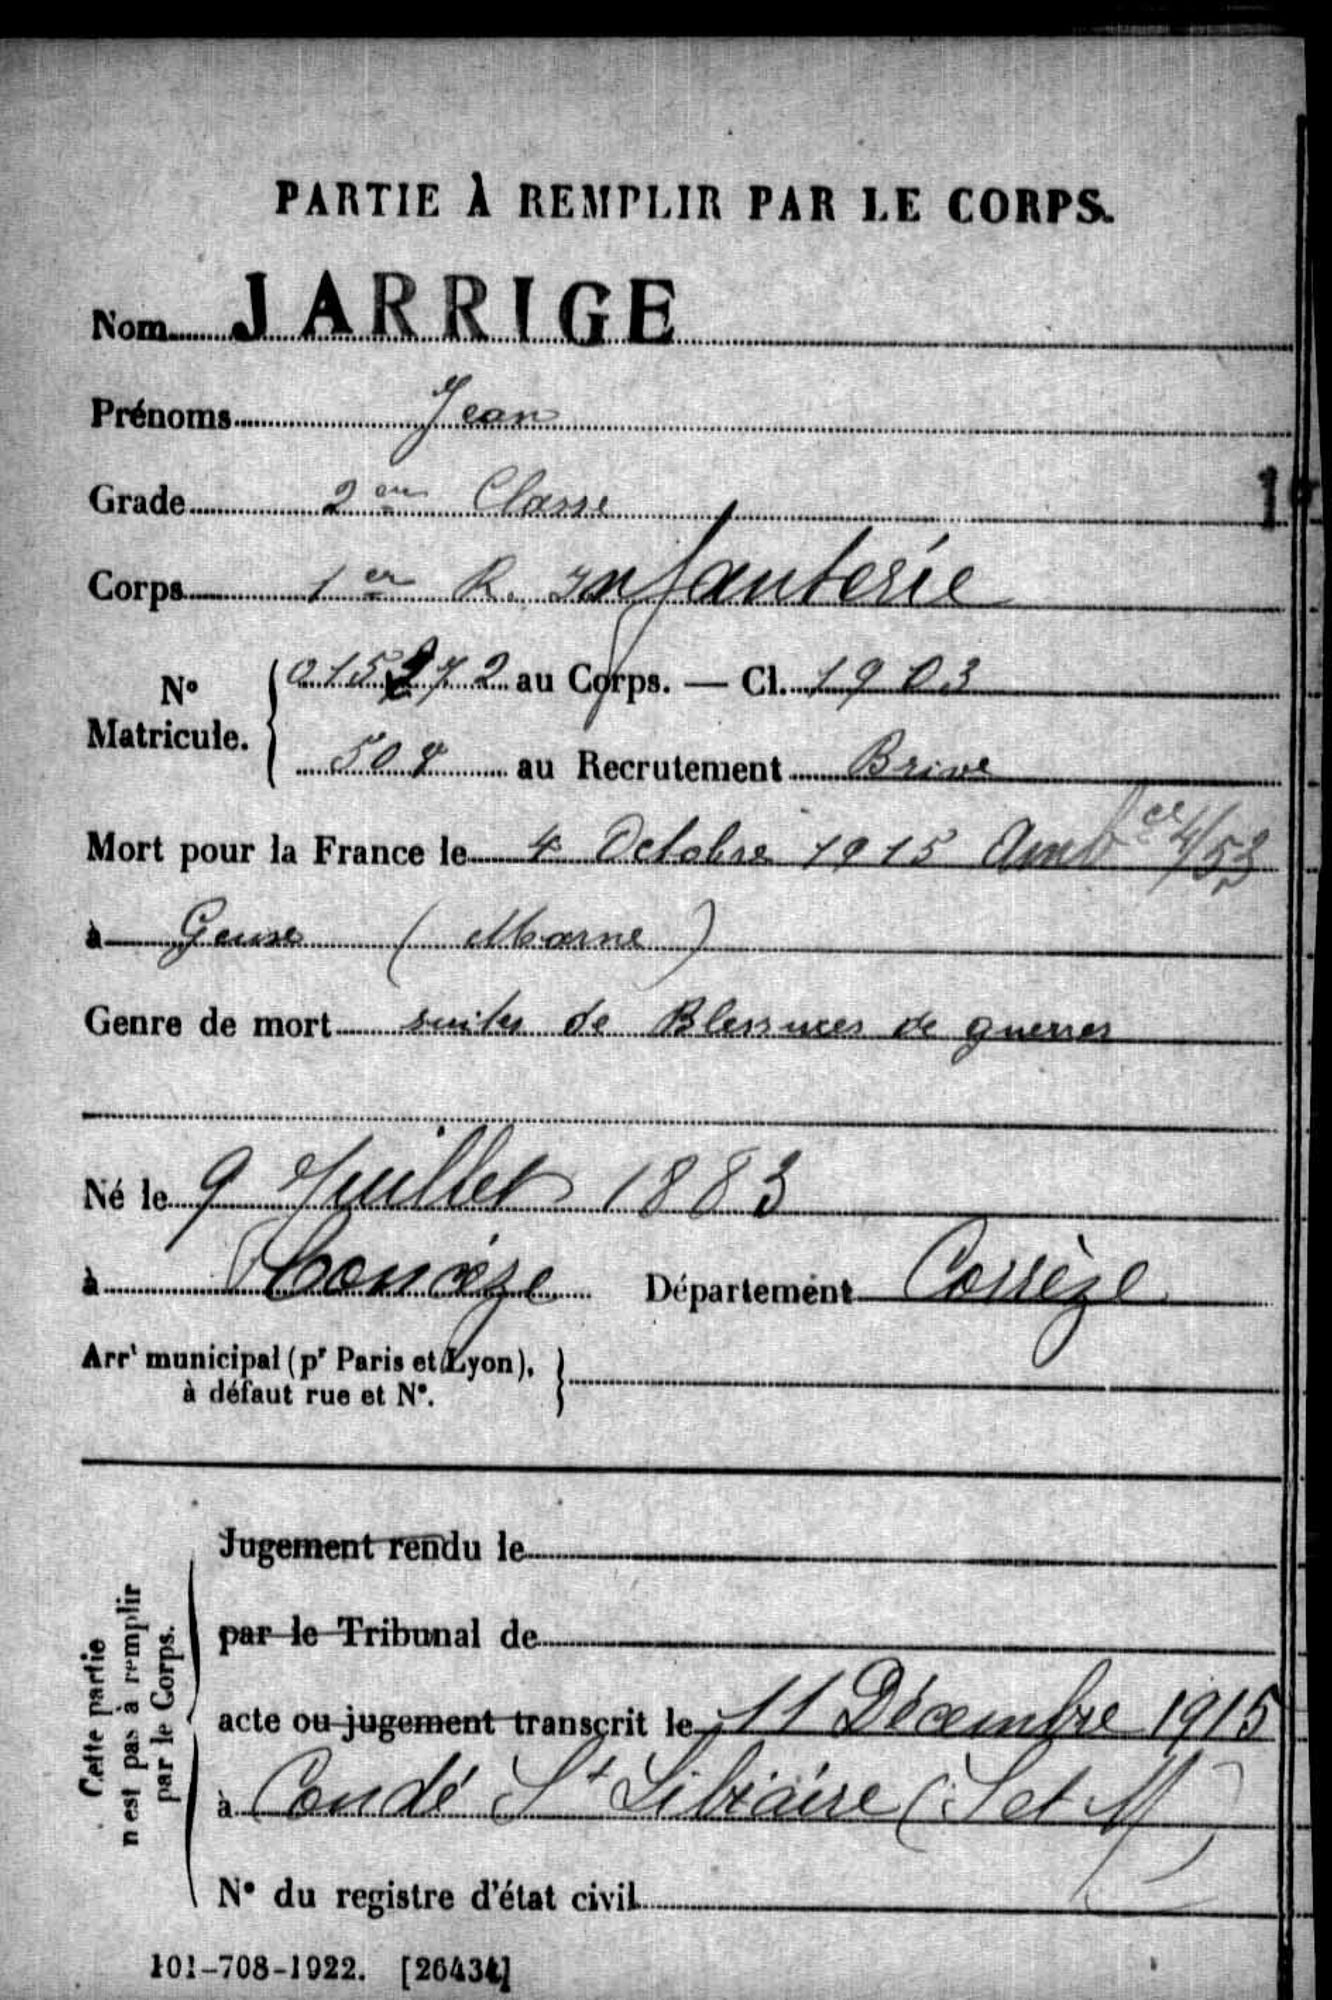 PARTIE À REMPLIR PAR LE CORPS.
Nom JARRIGE
Prénoms Jean
Grade 2em Classe
Corps 1er R. Infanterie
No Matricule. 015272 au Corps. — Cl. 1903
508 au Recrutement Brive
Mort pour la France le 4 Octobre 1915 Ambce 4/53
à (Marne)
Genre de mort suites de Blessures de guerres
Né le 9 Juillet 1883
à Département Corrèze
Arrt municipal (pr Paris et Lyon),
à défaut rue et No.
Cette partie
n'est pas à remplir
par le Corps.
Jugement rendu le
par le Tribunal de
acte ou jugement transcrit le 11 Décembre 1915
à Condé St Libiaire (S et M)
No du registre d'état civil
101-708-1922. [26434]